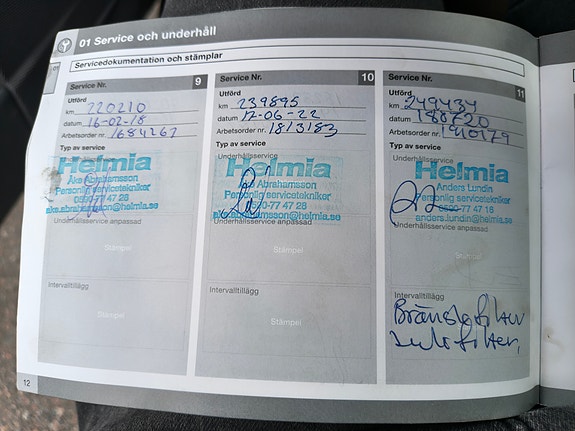 01 Service och underhåll
Servicedokumentation och stämplar
Service Nr. 9
Utförd
km 220210
datum 16-02-18
Arbetsorder nr. 1684267
Typ av service
Helmia
Åke Abrahamsson
Personlig servicetekniker
0550-77 47 28
ake.abrahamsson@helmia.se
Underhållsservice anpassad
Stämpel
Intervalltillägg
Stämpel
Service Nr. 10
Utförd
km 239895
datum 17-06-22
Arbetsorder nr. 1813183
Typ av service
Underhållsservice
Helmia
Åke Abrahamsson
Personlig servicetekniker
0550-77 47 28
ake.abrahamsson@helmia.se
Underhållsservice anpassad
Stämpel
Intervalltillägg
Stämpel
Service Nr. 11
Utförd
km 249434
datum 180720
Arbetsorder nr. 1910179
Typ av service
Underhållsservice
Helmia
Anders Lundin
Personlig servicetekniker
0550-77 47 16
anders.lundin@helmia.se
Underhållsservice anpassad
Stämpel
Intervalltillägg
Bränslefilter
Luftfilter,
12